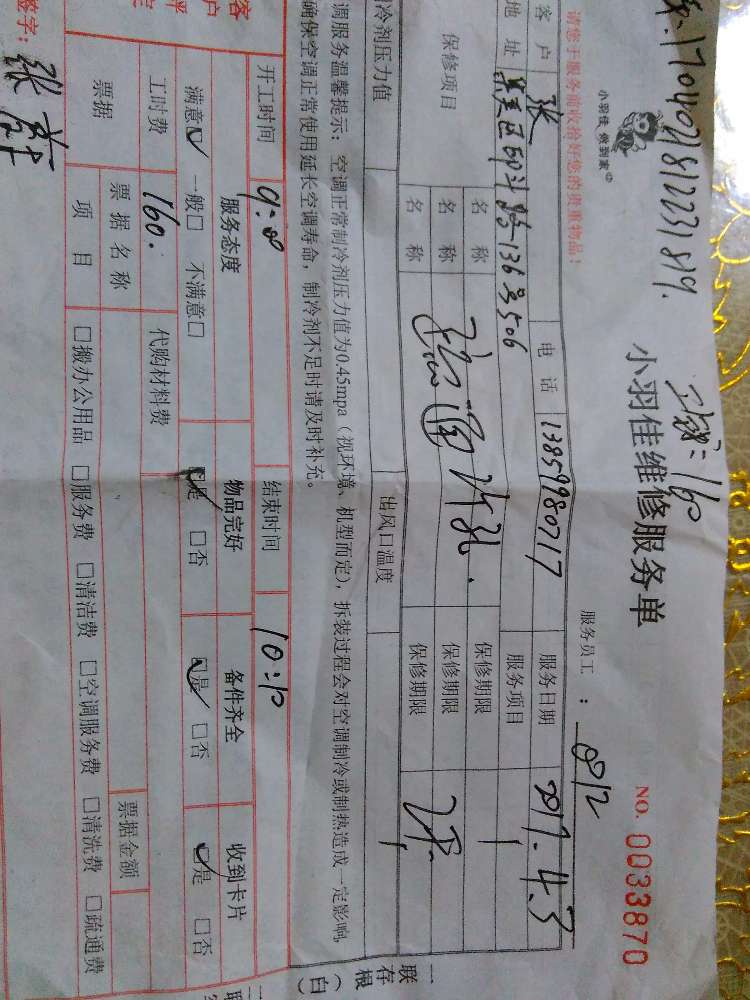 1704021812231819.
小羽佳 做到家
小羽佳维修服务单
NO. 0033870
工钱：160
请您于服务前收拾好您的贵重物品！
服务员工 ： 812
客 户 张 电 话 13859980717 服务日期 2017.4.3
地 址 集美区 136号506 服务项目
保修项目 名 称 保修期限
名 称 保修期限
名 称 保修期限
冷剂压力值 出风口温度
调服务温馨提示：空调正常制冷剂压力值为0.45mpa（视环境、机型而定），拆装过程会对空调制冷或制热造成一定影响，
确保空调正常使用延长空调寿命，制冷剂不足时请及时补充。
开工时间 9:00 结束时间 10:10
服务态度 物品完好 备件齐全 收到卡片
满意☑ 一般□ 不满意□ ☑是 □否 ☑是 □否 ☑是 □否
工时费 160. 代购材料费
票据 票 据 名 称 票据金额
项 目 □搬办公用品 □服务费 □清洁费 □空调服务费 □清洗费 □疏通费
客
户
签字：张
一
联
存
根
（白）
二
联